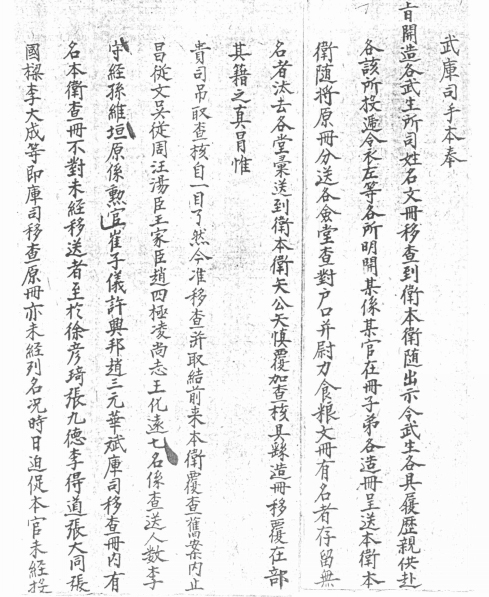 武庫司手本奉
旨開造各武生所司姓名文冊移查到衛本衛隨出示令武生各具履歷親供赴
各該所投遞令衣左等各所明開某係某官在冊子弟各造冊呈送本衛本
衛隨將原冊分送各僉堂查對户口并尉力食粮文冊有名者存留無
名者汰去各堂彙送到衛本衛矢公矢慎覆加查核具繇造冊移覆在部
其籍之真冒惟
貴司吊取查核自一目了然今准移查并取結前来本衛覆查舊案内止
昌從文吴從周汪湯臣王家臣趙四極凌尚志王化遠七名係查送人数李
守經孫維垣原係勲官崔子儀許興邦趙三元華斌庫司移查冊内有
名本衛查冊不對未經移送者至於徐彦琦張九德李得道張大同張
國樑李大成等即庫司移查原冊亦未經列名况時日迫促本官未經投